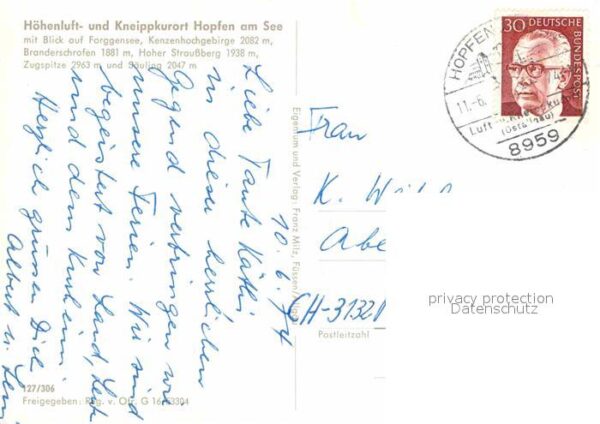 Höhenluft- und Kneippkurort Hopfen am See
mit Blick auf Forggensee, Kenzenhochgebirge 2082 m,
Branderschrofen 1881 m, Hoher Straußberg 1938 m,
Zugspitze 2963 m und Säuling 2047 m
10.6.74
Liebe Tante Käthi
in dieser herrlichen
Gegend verbringen wir
unsere Ferien. Wir sind
begeistert von Land,
und dem
Herzlich grüssen Dich
Albert u.
127/306
Freigegeben: Reg. v. Obb. G 16/
Eigentum und Verlag: Franz Milz, Füssen/
30 DEUTSCHE
BUNDESPOST
HOPFEN
11.-6.
Luft
(Ostallgäu)
8959
Frau
K. W
Abe
CH-3132
Postleitzahl
privacy protection
Datenschutz